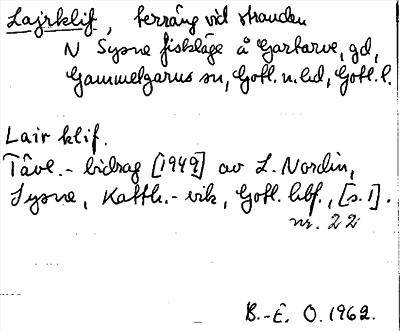 Lajrklif, terräng vid stranden
N Sysne fiskläge å Gartarve, gd,
Gammelgarns sn, Gotl. n. hd, Gotl. l.
Lair klif.
Tävl.- bidrag [1949] av L. Nordin,
Sysne, Katth.- vik, Gotl. hbf., [s. 1].
nr. 22
B.-E. O. 1962.